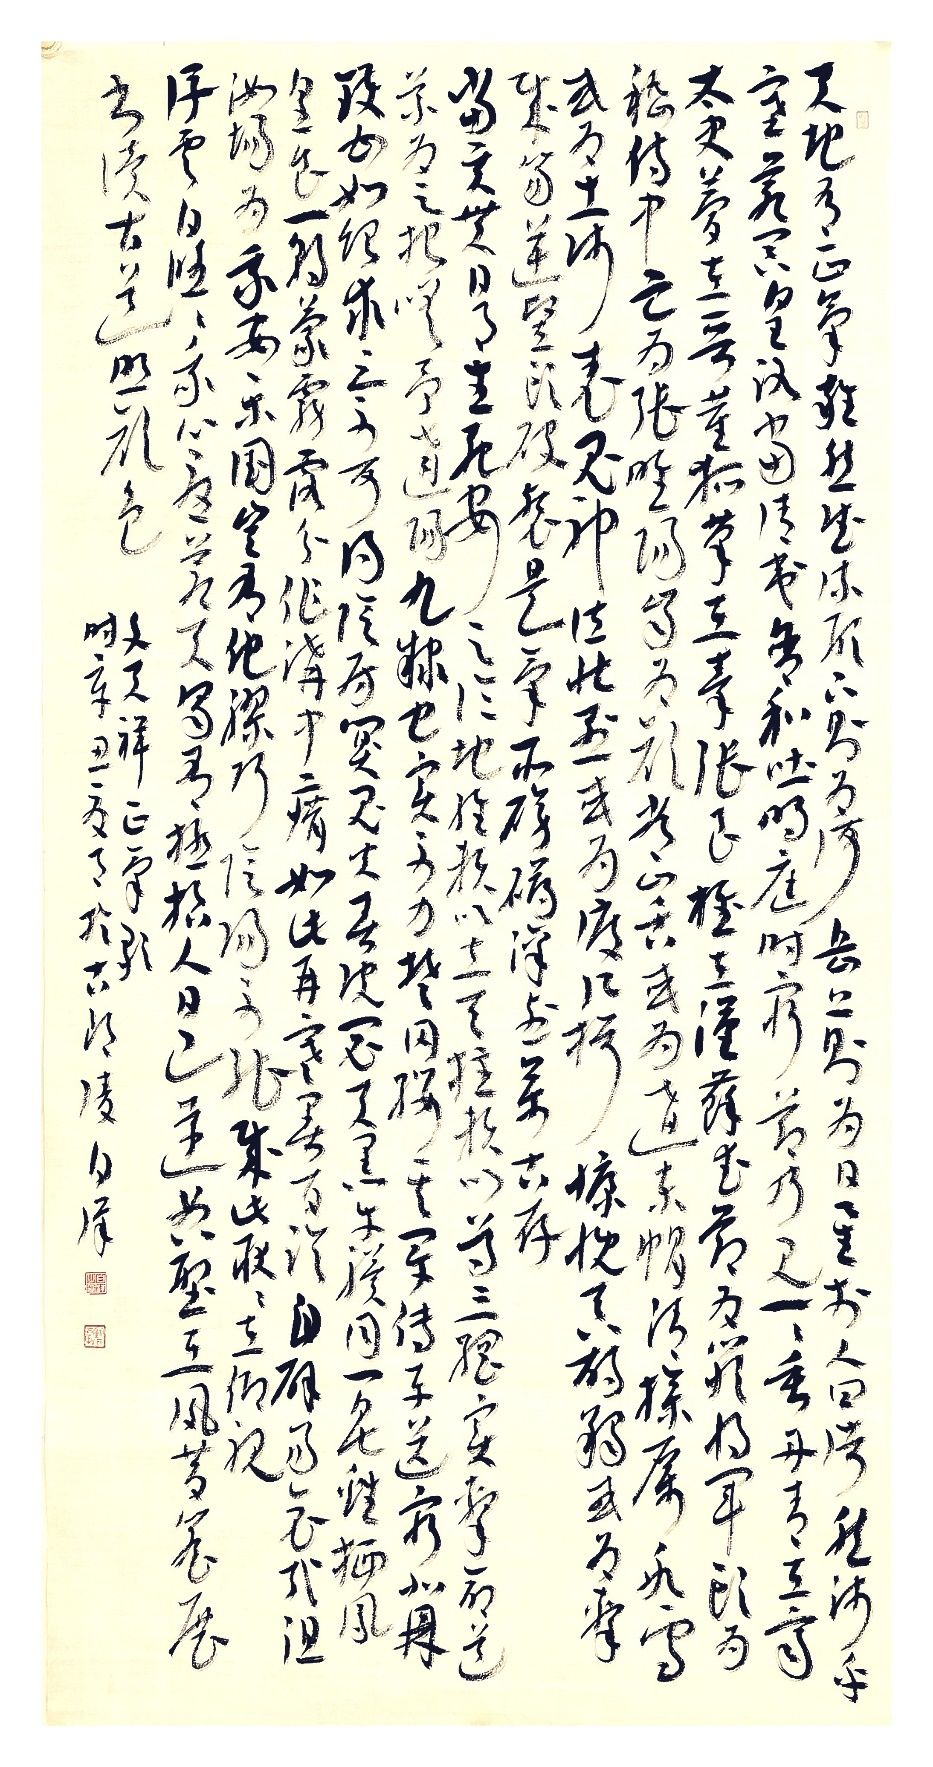 天地有正氣雜然賦流形下則為河岳上則為日星於人曰浩然沛乎
塞蒼冥皇路當清夷含和吐明庭時窮節乃見一一垂丹青在齊
太史簡在晉董狐筆在秦張良椎在漢蘇武節為嚴將軍頭為
嵇侍中血為張睢陽齒為顏常山舌或為遼東帽清操厲冰雪
或為出師表鬼神泣壯烈或為渡江楫慷慨吞胡羯或為擊
賊笏逆豎頭破裂是氣所磅礴凜烈萬古存
當其貫日月生死安足論地維賴以立天柱賴以尊三綱實繫命道
義為之根嗟予遘陽九隸也實不力楚囚纓其冠傳車送窮北鼎
鑊甘如飴求之不可得陰房闃鬼火春院閟天黑牛驥同一皂雞棲鳳
凰食一朝蒙霧露分作溝中瘠如此再寒暑百沴自辟易哀哉沮
洳場為我安樂國豈有他繆巧陰陽不能賊此耿耿在仰視
浮雲白悠悠我心悲蒼天曷有極哲人日已遠典型在夙昔風簷展
書讀古道照顏色
文天祥正氣歌
時辛丑夏月於古蘭陵白洋